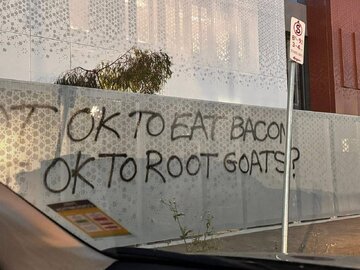 OT OK TO EAT BACON
OK TO ROOT GOATS?